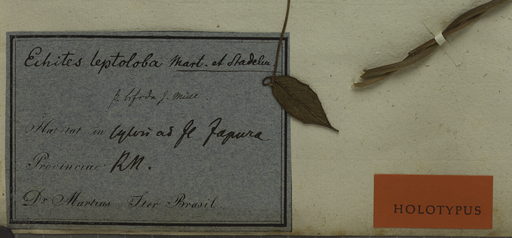 Echites leptoloba Mart. et Stadelm
β. bifida J. Müll.
Habitat in sylvis ad fl Japura
Provinciae RN.
Dr Martius Iter Brasil
HOLOTYPUS